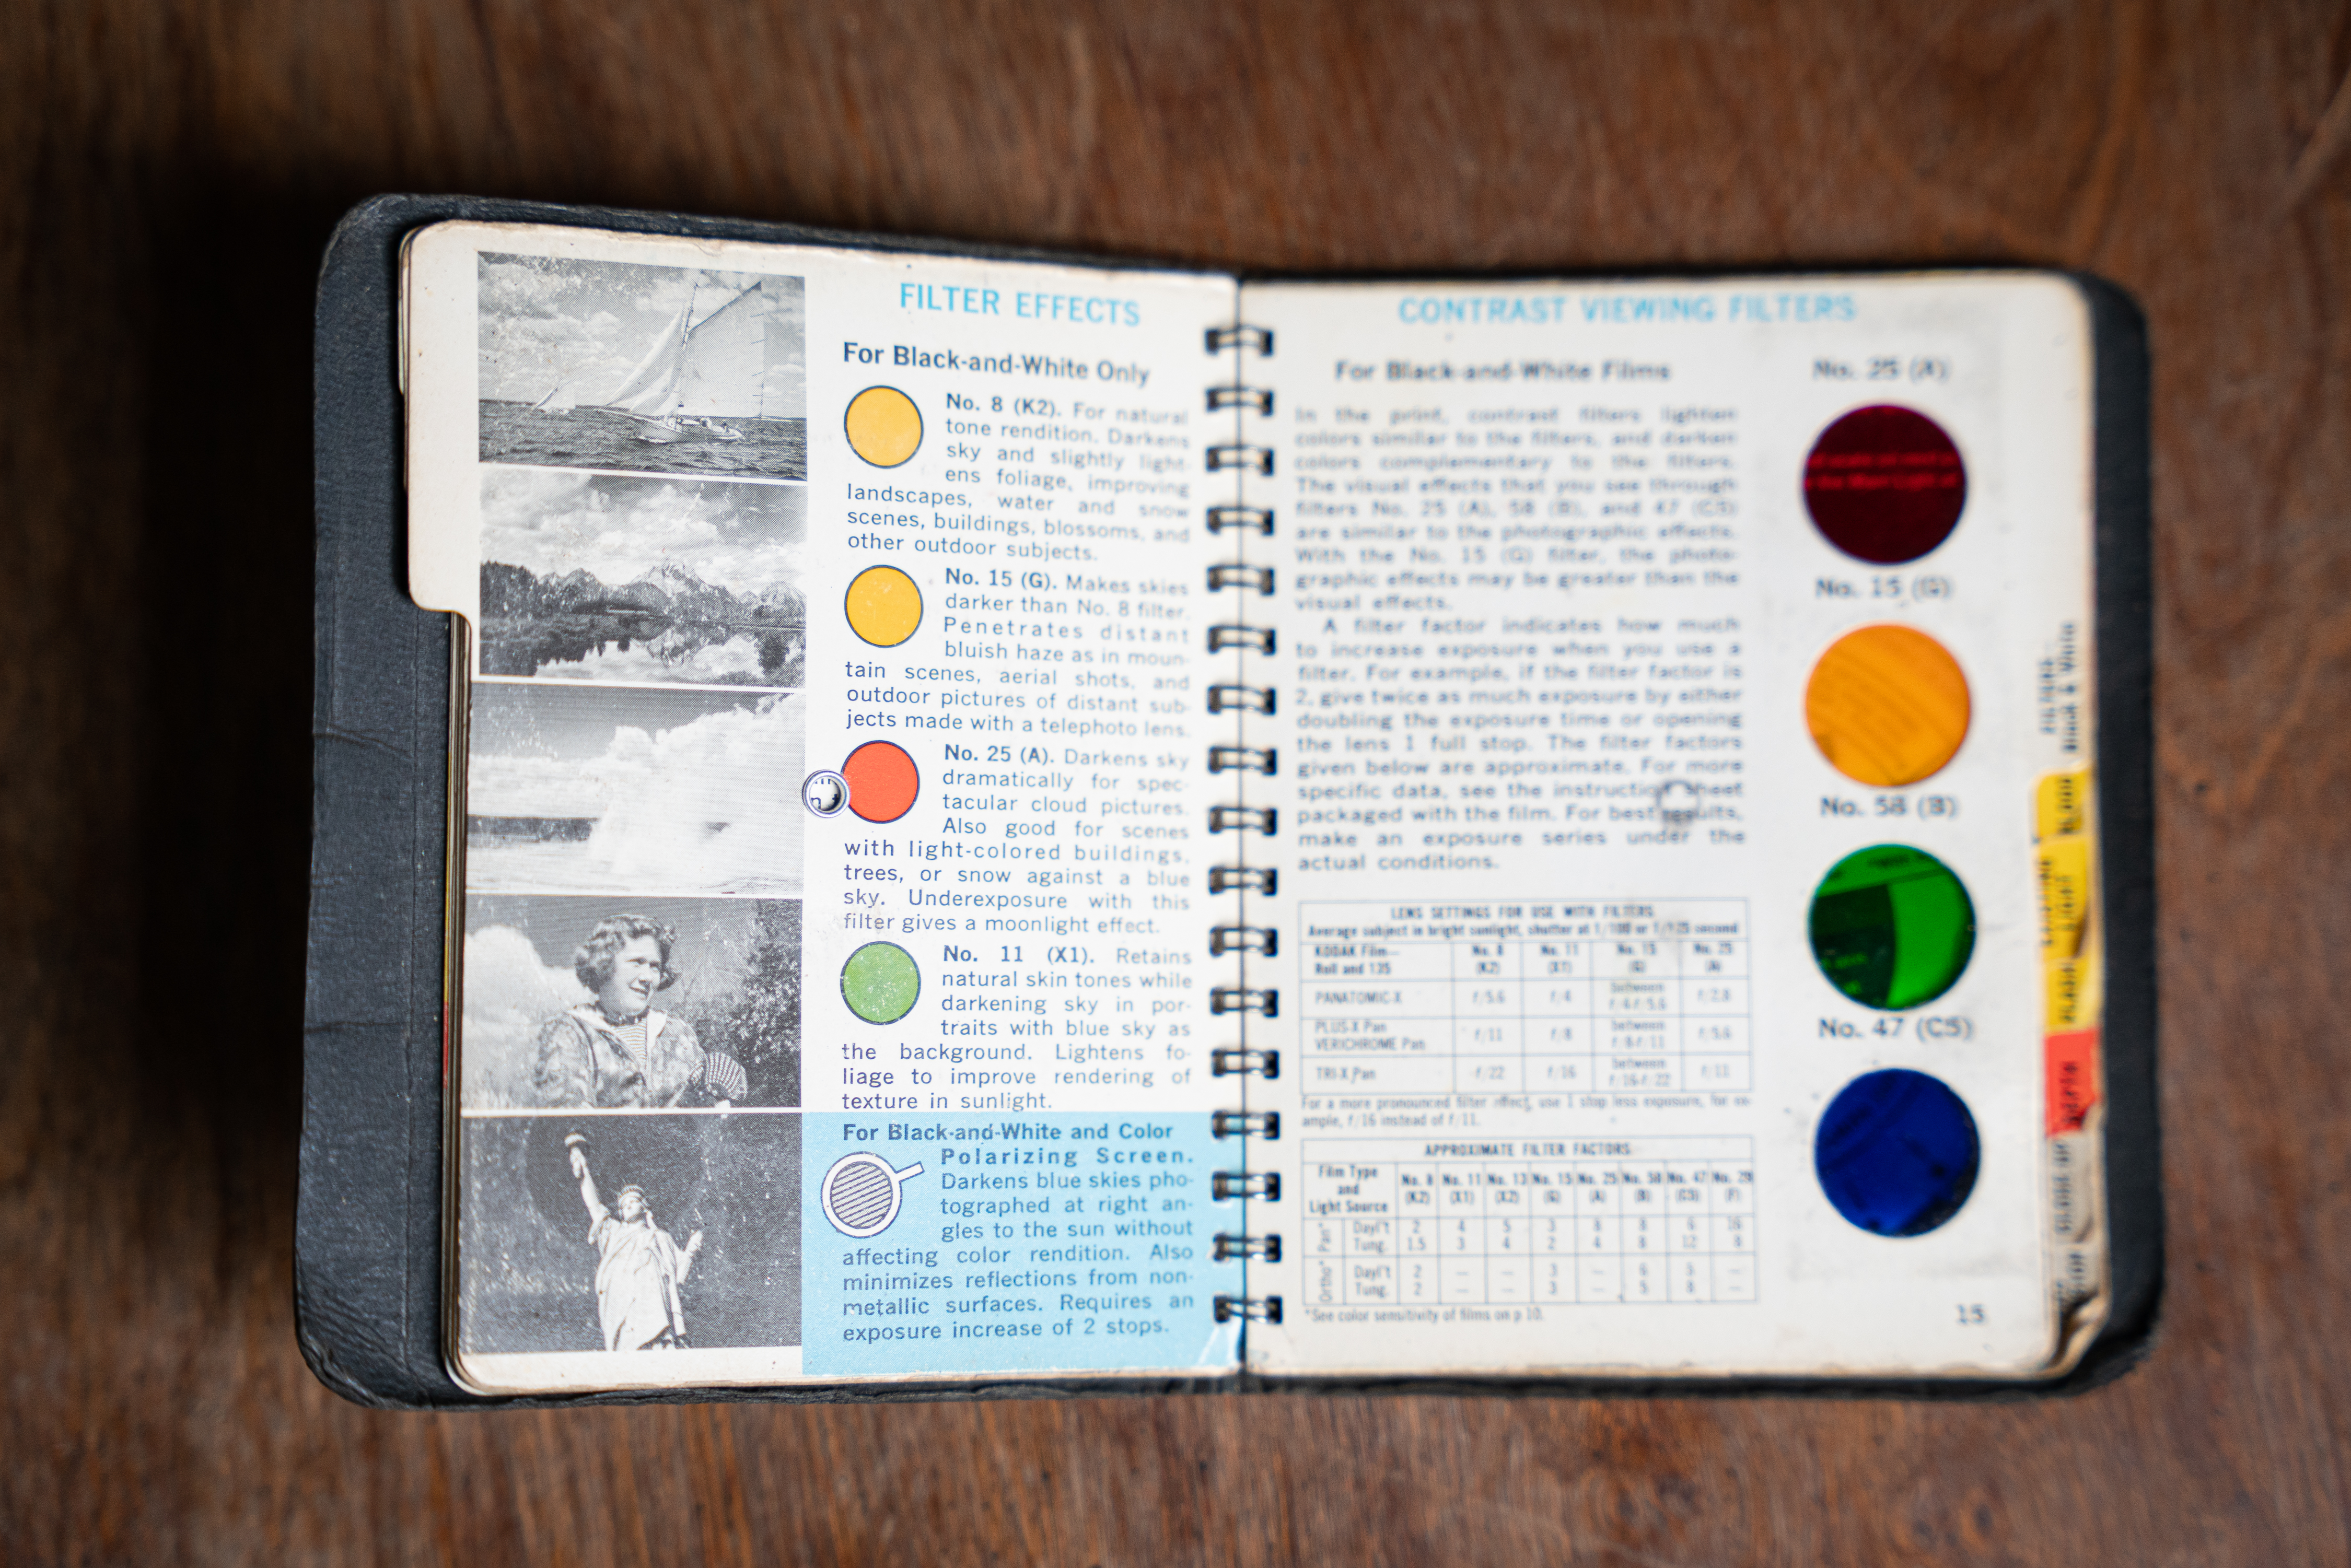 FILTER EFFECTS
For Black-and-White Only
No. 8 (K2). For natural
tone rendition. Darkens
sky and slightly light-
ens foliage, improving
landscapes, water and snow
scenes, buildings, blossoms, and
other outdoor subjects.
No. 15 (G). Makes skies
darker than No. 8 filter.
Penetrates distant
bluish haze as in moun-
tain scenes, aerial shots, and
outdoor pictures of distant sub-
jects made with a telephoto lens.
No. 25 (A). Darkens sky
dramatically for spec-
tacular cloud pictures.
Also good for scenes
with light-colored buildings,
trees, or snow against a blue
sky. Underexposure with this
filter gives a moonlight effect.
No. 11 (X1). Retains
natural skin tones while
darkening sky in por-
traits with blue sky as
the background. Lightens fo-
liage to improve rendering of
texture in sunlight.
For Black-and-White and Color
Polarizing Screen.
Darkens blue skies pho-
tographed at right an-
gles to the sun without
affecting color rendition. Also
minimizes reflections from non-
metallic surfaces. Requires an
exposure increase of 2 stops.
CONTRAST VIEWING FILTERS
For Black-and-White Films
In the print, contrast filters lighten
colors similar to the filters, and darken
colors complementary to the filters.
The visual effects that you see through
filters No. 25 (A), 58 (B), and 47 (C5)
are similar to the photographic effects.
With the No. 15 (G) filter, the photo-
graphic effects may be greater than the
visual effects.
A filter factor indicates how much
to increase exposure when you use a
filter. For example, if the filter factor is
2, give twice as much exposure by either
doubling the exposure time or opening
the lens 1 full stop. The filter factors
given below are approximate. For more
specific data, see the instruction sheet
packaged with the film. For best results,
make an exposure series under the
actual conditions.
LENS SETTINGS FOR USE WITH FILTERS
Average subject in bright sunlight, shutter at 1/100 or 1/125 second
KODAK Film— No. 8 No. 11 No. 15 No. 25
Roll and 135 (K2) (X1) (G) (A)
PANATOMIC-X f/5.6 f/4 between f/4-f/5.6 f/2.8
PLUS-X Pan
VERICHROME Pan f/11 f/8 between f/8-f/11 f/5.6
TRI-X Pan f/22 f/16 between f/16-f/22 f/11
For a more pronounced filter effect, use 1 stop less exposure, for ex-
ample, f/16 instead of f/11.
APPROXIMATE FILTER FACTORS
Film Type
and
Light Source
No. 8 No. 11 No. 13 No. 15 No. 25 No. 58 No. 47 No. 29
(K2) (X1) (X2) (G) (A) (B) (C5) (F)
Pan* Dayl't 2 4 5 3 8 8 6 16
Tung. 1.5 3 4 2 4 8 12 8
Ortho* Dayl't 2 — — 3 — 6 5 —
Tung. 2 — — 3 — 5 8 —
*See color sensitivity of films on p 10.
No. 25 (A)
No. 15 (G)
No. 58 (B)
No. 47 (C5)
15
FILTERS
Black & White